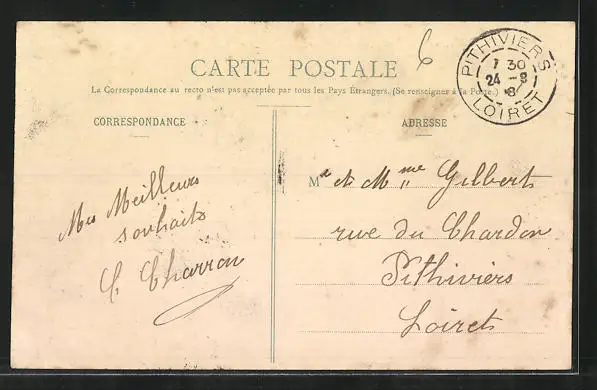 6
PITHIVIERS
7 30
24 - 8
8
LOIRET
CARTE POSTALE
La Correspondance au recto n'est pas acceptée par tous les Pays Étrangers. (Se renseigner à la Poste.)
CORRESPONDANCE
ADRESSE
Mes Meilleurs
souhaits
C Charron
Mr et Mme Gilbert
rue du Chardon
Pithiviers
Loiret